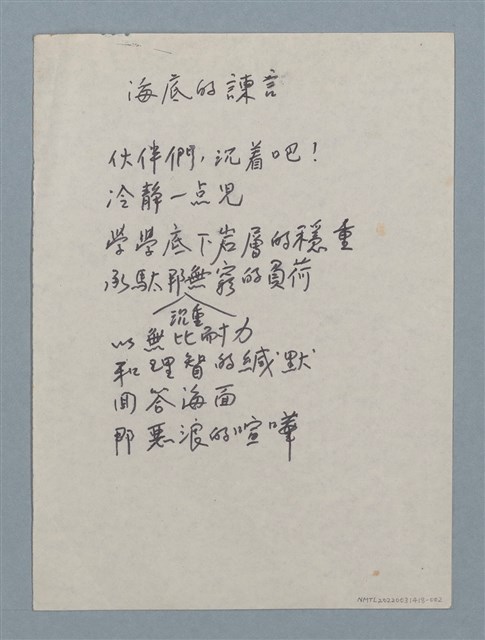 海底的諫言
伙伴們，沉着吧！
冷靜一点児
學學底下岩層的穩重
承馱那無窮的負荷
沉重
以無比耐力
和理智的緘默
回答海面
那惡浪的喧嘩
NMTL20220031418-002